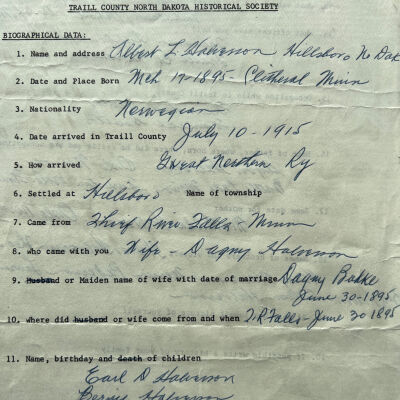 TRAILL COUNTY NORTH DAKOTA HISTORICAL SOCIETY
BIOGRAPHICAL DATA:
1. Name and address Albert L Halverson Hillsboro No Dak
2. Date and Place Born Mch 17-1895- Clitheral Minn
3. Nationality Norwegian
4. Date arrived in Traill County July 10-1915
5. How arrived Great Northern Ry
6. Settled at Hillsboro Name of township
7. Came from Thief River Falls- Minn
8. who came with you Wife - Dagny Halverson
9. Husband or Maiden name of wife with date of marriage Dagny Bakke
June 30-1895
10. where did husband or wife come from and when T.R Falls- June 30 1895
11. Name, birthday and death of children
Earl D Halverson
Halverson